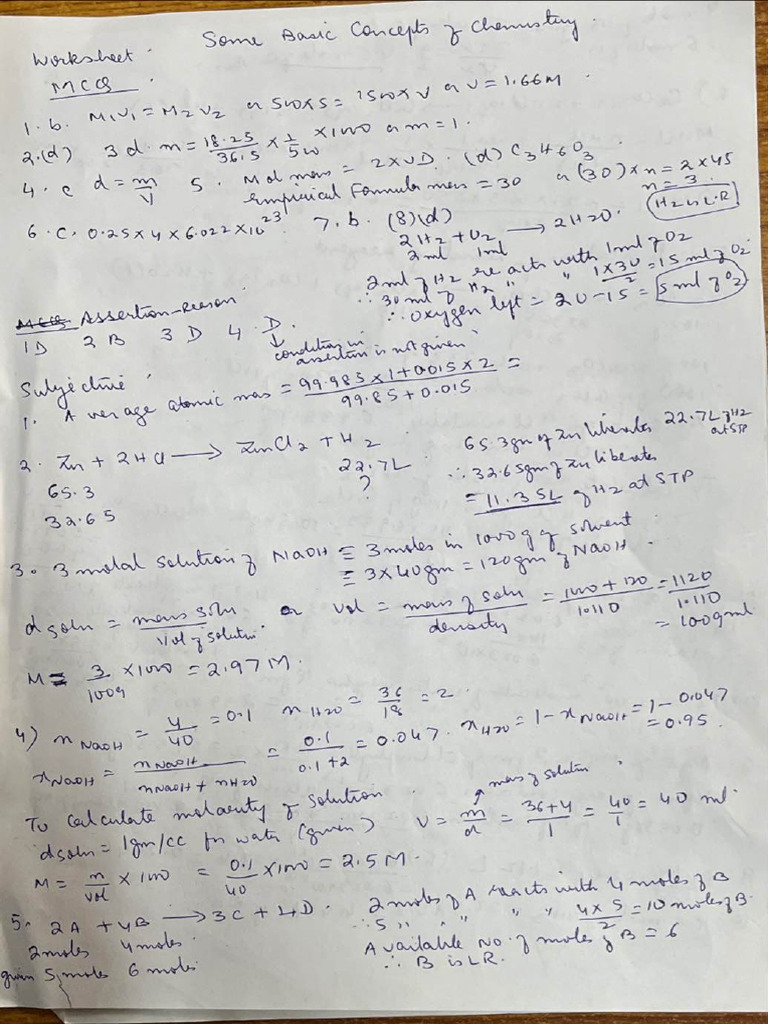 Some Basic Concepts of Chemistry.
Worksheet.
MCQ.
1. b. M1V1 = M2V2 or 500x5 = 1500xV or V = 1.66M.
2. (d) 3 d. m = 18.25/36.5 x 1/500 x 1000 or m = 1.
4. c d = m/V 5. Mol mass = 2xVD. (d) C3H6O3
Empirical Formula mass = 30 or (30)xn = 2x45
n = 3.
6. C. 0.25x4x6.022x10^23 7. b. (8)(d)
2H2 + O2 → 2H2O. (H2 is L.R)
2ml 1ml
2ml of H2 reacts with 1ml of O2
∴ 30 ml of H2 " " 1x30/2 = 15 ml of O2
∴ Oxygen left = 20-15 = 5ml of O2
MCQ Assertion-Reason
1D 2B 3D 4. D.
↓ condition in assertion is not given
Subjective
1. Average atomic mass = 99.985x1+0.015x2 / 99.85+0.015 =
2. Zn + 2HCl → ZnCl2 + H2
65.3 22.7L
32.65 ?
65.3gm of Zn liberates 22.7L of H2 at STP
∴ 32.65gm of Zn liberates
= 11.35L of H2 at STP
3. 3 molal solution of NaOH ≡ 3 moles in 1000g of solvent
≡ 3x40gm = 120gm of NaOH.
d soln = mass soln / Vol of solution. or Vol = mass of soln / density = 1000+120 / 1.110 = 1120 / 1.110
= 1009ml
M = 3/1009 x1000 = 2.97M.
4) n NaOH = 4/40 = 0.1 n H2O = 36/18 = 2.
xNaOH = nNaOH / nNaOH + nH2O = 0.1 / 0.1+2 = 0.047. xH2O = 1-xNaOH = 1-0.047
= 0.95.
To calculate molarity of solution.
dsoln = 1gm/cc for water (given) V = m/d = 36+4 / 1 = 40/1 = 40 ml.
mass of solution
M = n/vol x 1000 = 0.1/40 x1000 = 2.5M.
5. 2A + 4B → 3C + 4D.
2 moles 4 moles.
given 5 moles 6 moles
2 moles of A reacts with 4 moles of B
∴ 5 " " " " 4x5/2 = 10 moles of B.
Available No. of moles of B = 6
∴ B is LR.